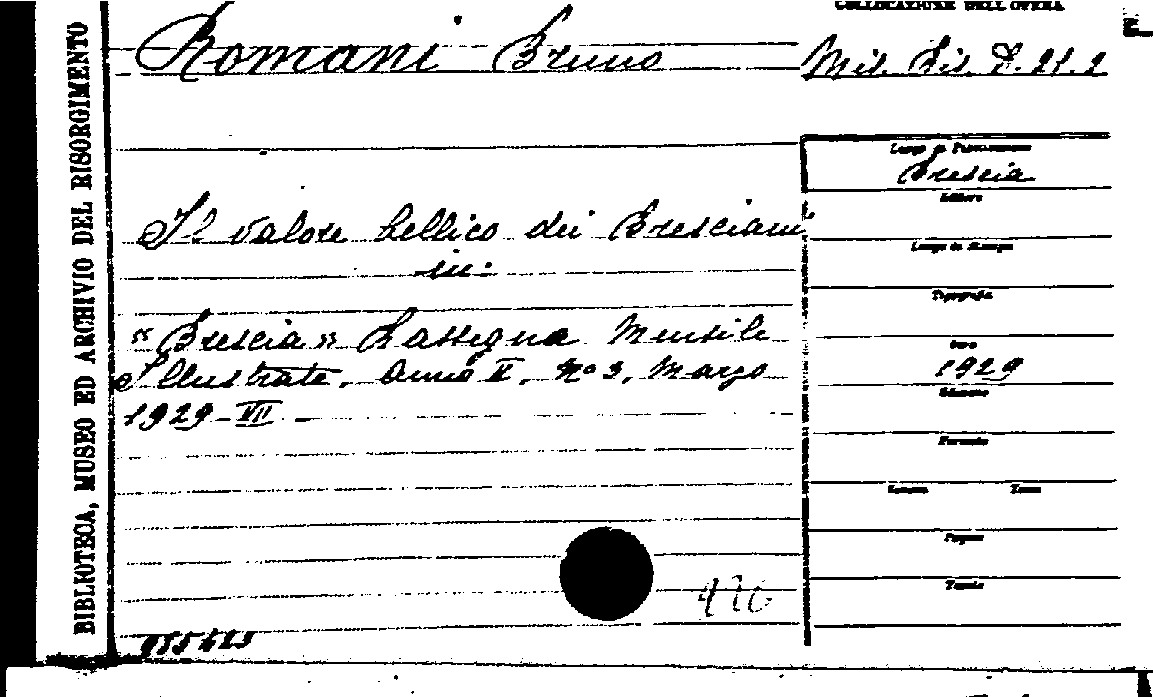 COLLOCAZIONE DELL'OPERA
Romani Bruno
Mis. Bis. D. 21.2
BIBLIOTECA, MUSEO ED ARCHIVIO DEL RISORGIMENTO
Luogo di Pubblicazione
Brescia
Editore
Luogo di Stampa
Tipografia
Data
1929
Edizione
Formato
Volume Tomo
Pagine
Tavole
Il valore bellico dei Bresciani
in:
"Brescia" Rassegna Mensile
Illustrata. Anno II. No 3. Marzo
1929-VII